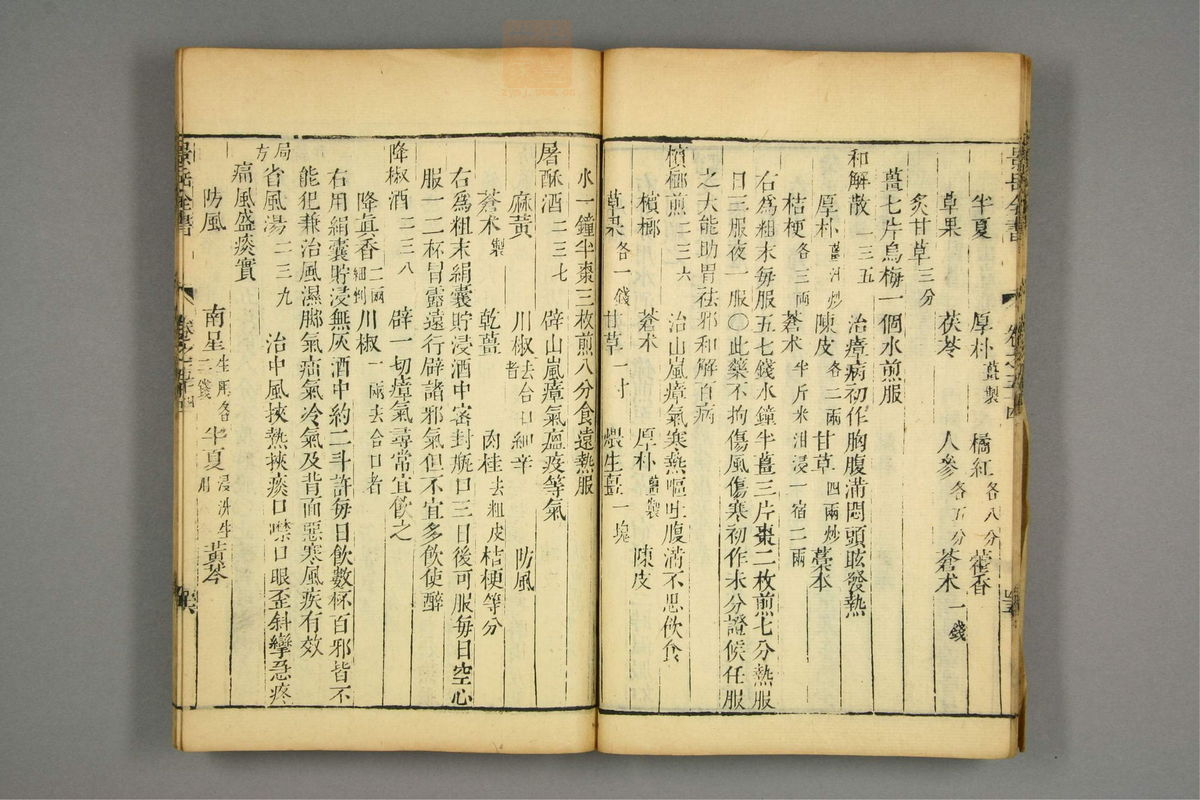 景岳全書 卷之五十四
半夏 厚朴薑製 橘紅各八分 藿香
草果 茯苓 人參各五分 蒼术一錢
炙甘草三分
薑七片烏梅一個水煎服
和解散一三五 治瘴病初作胸腹滿悶頭眩發熱
厚朴薑汁炒 陳皮各二兩 甘草四兩炒 藁本
桔梗各三兩 蒼术半斤米泔浸一宿二兩
右為粗末每服五七錢水鐘半薑三片棗二枚煎七分熱服
日三服夜一服〇此藥不拘傷風傷寒初作未分證候任服
之大能助胃祛邪和解百病
檳榔煎二三六 治山嵐瘴氣寒熱嘔吐腹滿不思飲食
檳榔 蒼术 厚朴薑製 陳皮
草果各一錢 甘草一寸 煨生薑一塊
水一鐘半棗三枚煎八分食遠熱服
屠酥酒二三七 辟山嵐瘴氣瘟疫等氣
麻黃 川椒去合口者 細辛 防風
蒼术製 乾薑 肉桂去粗皮 桔梗等分
右為粗末絹囊貯浸酒中密封瓶口三日後可服每日空心
服一二杯冒露遠行辟諸邪氣但不宜多飲使醉
降椒酒二三八 辟一切瘴氣尋常宜飲之
降真香二兩細剉 川椒一兩去合口者
右用絹囊貯浸無灰酒中約二斗許每日飲數杯百邪皆不
能犯兼治風濕脚氣疝氣冷氣及背面惡寒風疾有效
局方省風湯二三九 治中風挾熱挾痰口噤口眼歪斜攣急疼
痛風盛痰實
防風 南星生用各二錢 半夏浸洗生用 黃芩
景岳全書